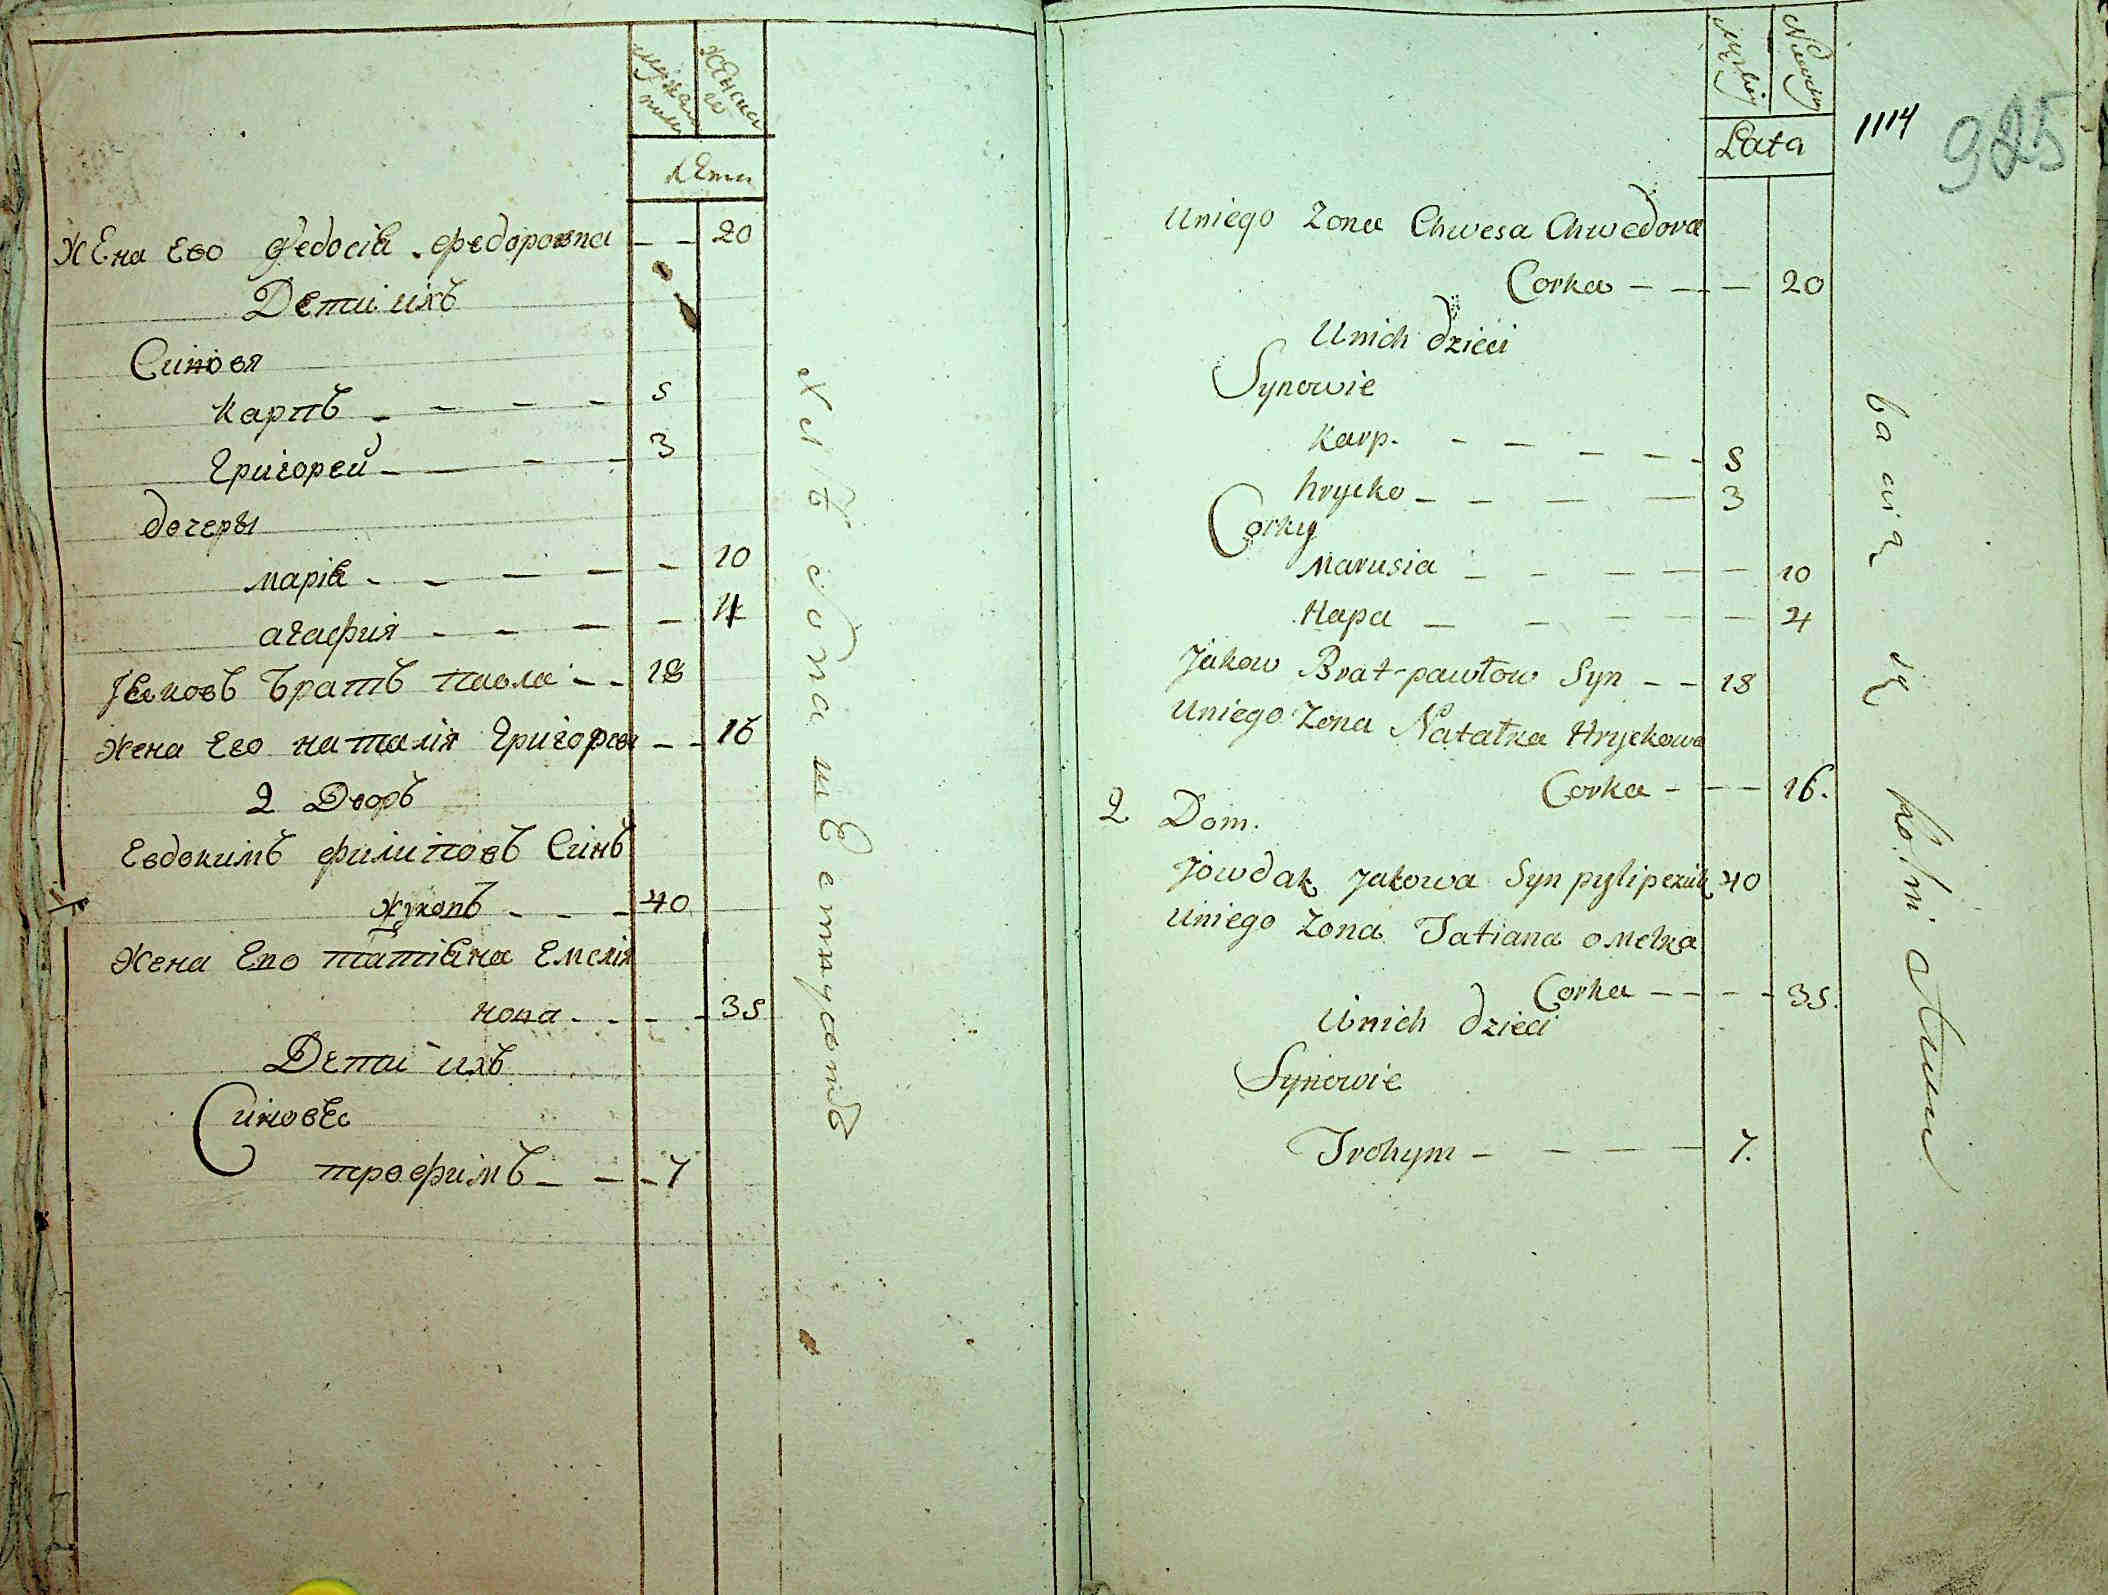 Лети
Жена Его Федосіа Федоровна – – 20
Дети ихъ
Синовя
Карпъ – – – – 5
Григорей – – – – 3
дочеры
Маріа – – – – – 10
агафия – – – – – 4
Іаковъ Братъ павла – – 18
Жена Его наталія Григорева – – 16
2 Дворъ
Евдокимъ филиповъ Синъ
Жуковъ – – – 40
Жена Его татіана Емеліа
нова – – – – 35
Дети ихъ
Синовѣ
трофимъ – – – 7
Męzkiey
Lata
1114
925
Uniego Zona Chwesa Chwedora
Corka – – – 20
Unich dzieci
Synowie
Karp. – – – – – 5
hrycko – – – – 3
Corky
Marusia – – – – – 10
Hapa – – – – – 4
Jakow Brat pawłow Syn – – 18
Uniego Zona Natałka Hryckowa
Corka – – – 16.
2 Dom.
Jowdak Jakowa Syn pylipczuk 40
Uniego Zona Tatiana omelka
Corka – – – – 35.
Unich dzieci
Synowie
Trohym – – – – 7.